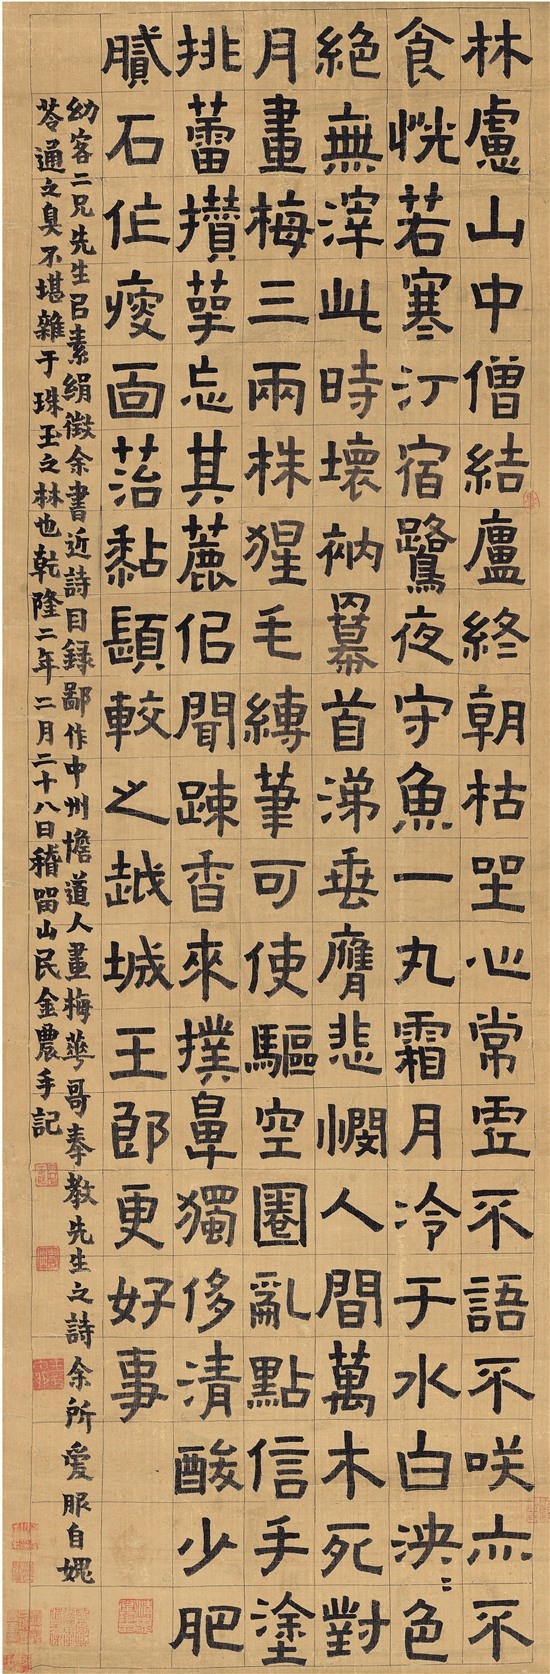 林慮山中僧結廬終朝枯坐心常虛不語不咲亦不
食恍若寒汀宿鷺夜守魚一丸霜月冷于水白泱〻色
絶無滓此時壞衲冪首涕垂膺悲憫人間萬木死對
月畫梅三兩株猩毛縛筆可使驅空圈亂點信手塗
挑蕾攢萼忘其麤但聞疎香來撲鼻獨侈清酸少肥
膩石作瘦面苔黏顋較之越城王郎更好事
幼客二兄先生㠯素絹徵余書近詩目録鄙作中州憺道人畫梅華哥奉教先生之詩余所愛服自媿
苓通之臭不堪雜于珠玉之林也乾隆二年二月二十八日稽留山民金農手記